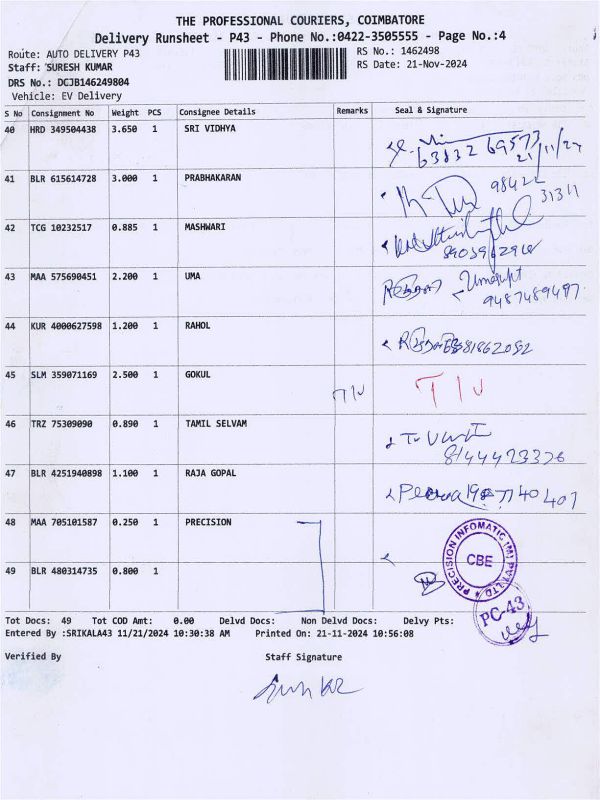 THE PROFESSIONAL COURIERS, COIMBATORE
Delivery Runsheet - P43 - Phone No.:0422-3505555 - Page No.:4
Route: AUTO DELIVERY P43
RS No.: 1462498
Staff: SURESH KUMAR
RS Date: 21-Nov-2024
DRS No.: DCJB146249804
Vehicle: EV Delivery
S No Consignment No Weight PCS Consignee Details Remarks Seal & Signature
40 HRD 349504438 3.650 1 SRI VIDHYA
63832 69573
21/11/24
41 BLR 615614728 3.000 1 PRABHAKARAN
98422
31311
42 TCG 10232517 0.885 1 MASHWARI
43 MAA 575690451 2.200 1 UMA
9487489497
44 KUR 4000627598 1.200 1 RAHOL
45 SLM 359071169 2.500 1 GOKUL T/U T/U
46 TRZ 75309090 0.890 1 TAMIL SELVAM
8144423326
47 BLR 4251940898 1.100 1 RAJA GOPAL
48 MAA 705101587 0.250 1 PRECISION
PRECISION INFOMATIC (M) PVT LTD
CBE
49 BLR 480314735 0.800 1
PC-43
Tot Docs: 49 Tot COD Amt: 0.00 Delvd Docs: Non Delvd Docs: Delvy Pts:
Entered By :SRIKALA43 11/21/2024 10:30:38 AM Printed On: 21-11-2024 10:56:08
Verified By Staff Signature